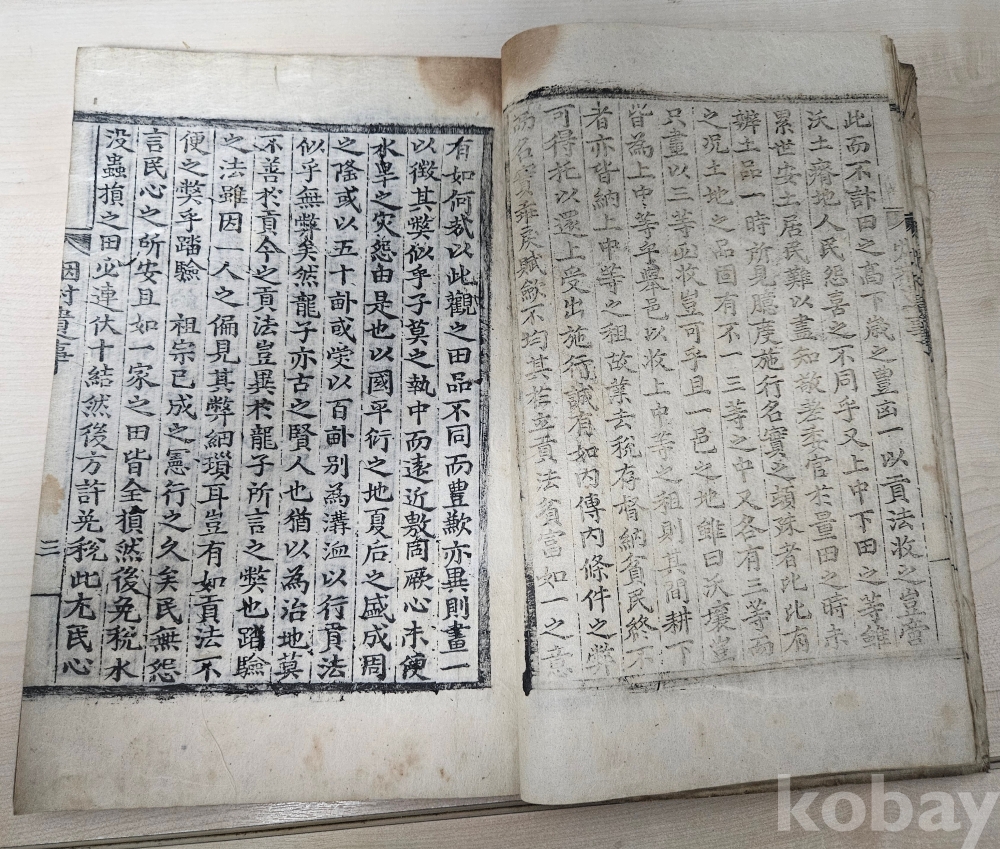 此而不計田之高下歲之豊凶一以貢法收之豈當
沃土瘠地人民怨喜之不同乎又上中下田之等雖
累世安土居民難以盡知敬差委官於量田之時未
辨土品一時所見臆度施行名實之頃殊者比比有
之况土地之品固有不一三等之中又各有三等而
只畫以三等而收豈可乎且一邑之地雖曰沃壤豈
皆為上中等乎擧邑以收上中等之租則其間耕下
者亦皆納上中等之租故業去稅存督納貧民終不
可得托以還上受出施行誠有如內傳內條件之弊
而名實乖戾賦斂不均甚於並貢法貧富如一之意
有如何哉以此觀之田品不同而豊歉亦異則畫一
以徵其弊似乎子莫之執中而遠近敷同厥心未便
水旱之灾怨由是也以國平衍之地夏后之盛成周
之隆或以五十畝或以百畝別為溝洫以行貢法
似乎無弊矣然龍子亦古之賢人也猶以為治地莫
不善於貢今之貢法豈異於龍子所言之弊也踏驗
之法雖因一人之偏見其弊細瑣耳豈有如貢法不
便之弊乎踏驗 祖宗已成之憲行之久矣民無怨
言民心之所安且如一家之田皆全損然後免稅水
没蟲損之田必連伏十結然後方許免稅此尤民心
遺事
三
kobay